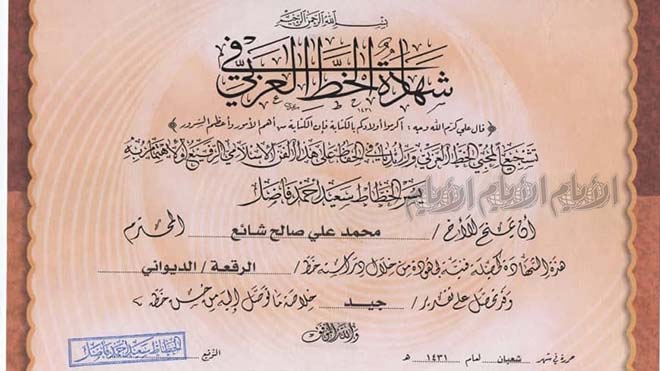 بسم الله الرحمن الرحيم
شهادة في الخط العربي
١٤٣١
﴿ قال علي كرّم الله وجهه : أكرموا أولادكم بالكتابة فإن الكتابة من أهم الأمور وأعظم السرور ﴾
تشجيعاً لمحبي الخط العربي ورائديه في الحفاظ على هذا الفن الإسلامي الرفيع أو الاهتمام به
يسر الخطاط سعيد أحمد فاضل
الأيام الأيام الأيام
أن يمنح للأخ / محمد علي صالح شائع المحترم
هذه الشهادة كحصيلة فنية لجهوده من خلال دراسته خط / الرقعة / الديواني
وقد تحصل على تقدير / جيد خلاصة ما توصل إليه من حسن خطه >
والله الموفق
حرر في شهر شعبان لعام ١٤٣١ هـ التوقيع الخطاط سعيد أحمد فاضل